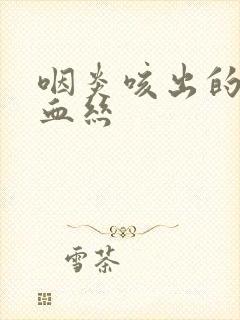 咽炎咳出的
血丝
雪茶